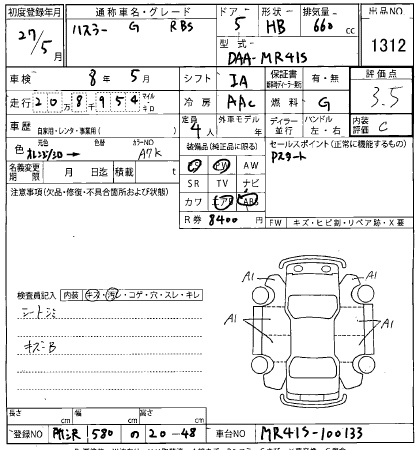 初度登録年月 通称車名・グレード ドア 形状 排気量 出品NO
27/5月 ハスラー G RBS 5 HB 660cc 1312
型式
DAA-MR41S
車検 8年5月 シフト IA 保証書 有・無 評価点
走行 208954 マイル キロ 冷房 AAC 燃料 G 3.5
車歴 自家用・レンタ・事業用( ) 定員 4人 外車モデル 年 ディーラー 並行 ハンドル 左・右 内装評価 C
色 元色 オレンジ/3D 色替 カラーNO A7K 装備品(純正品に限る) セールスポイント(正常に機能するもの)
Pスタート
名義変更期限 月 日迄 積載 t PS PW AW
注意事項(欠品・修復・不具合箇所および状態) SR TV ナビ
カワ エアB ABS
R券 8400 FW キズ・ヒビ割・リペア跡・X要
A1 A1
検査員記入 内装 キズ・汚れ・コゲ・穴・スレ・キレ
シートシミ
A1 A1
キズB
A1 A1
長さ cm 幅 cm 高さ cm
登録NO 所沢 580 の 20-48 車台NO MR41S-100133